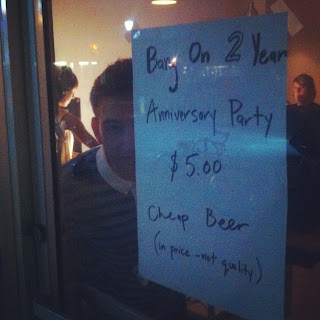 Bang On 2 Year
Anniversary Party
$5.00
Cheap Beer
(in price - not quality)